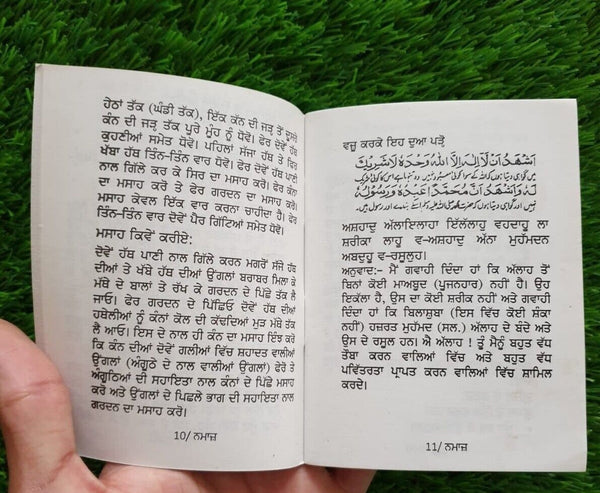 ਹੇਠਾਂ ਤੱਕ (ਘੰਡੀ ਤੱਕ), ਇੱਕ ਕੰਨ ਦੀ ਜੜ੍ਹ ਤੋਂ ਦੂਸਰੇ
ਕੰਨ ਦੀ ਜੜ੍ਹ ਤੱਕ ਪੂਰੇ ਮੂੰਹ ਨੂੰ ਧੋਵੋ। ਫੇਰ ਦੋਵੇਂ ਹੱਥ
ਕੂਹਣੀਆਂ ਸਮੇਤ ਧੋਵੋ। ਪਹਿਲਾਂ ਸੱਜਾ ਹੱਥ ਤੇ ਫਿਰ
ਖੱਬਾ ਹੱਥ ਤਿੰਨ-ਤਿੰਨ ਵਾਰ ਧੋਵੋ। ਫੇਰ ਦੋਵੇਂ ਹੱਥ ਪਾਣੀ
ਨਾਲ ਗਿੱਲੇ ਕਰ ਕੇ ਸਿਰ ਦਾ ਮਸਾਹ ਕਰੋ। ਫੇਰ ਕੰਨਾਂ
ਦਾ ਮਸਾਹ ਕਰੋ ਤੇ ਫੇਰ ਗਰਦਨ ਦਾ ਮਸਾਹ ਕਰੋ।
ਮਸਾਹ ਕੇਵਲ ਇੱਕ ਵਾਰ ਕਰਨਾ ਚਾਹੀਦਾ ਹੈ। ਫੇਰ
ਤਿੰਨ-ਤਿੰਨ ਵਾਰ ਦੋਵੇਂ ਪੈਰ ਗਿੱਟਿਆਂ ਸਮੇਤ ਧੋਵੋ।
ਮਸਾਹ ਕਿਵੇਂ ਕਰੀਏ:
ਦੋਵੇਂ ਹੱਥ ਪਾਣੀ ਨਾਲ ਗਿੱਲੇ ਕਰਨ ਮਗਰੋਂ ਸੱਜੇ ਹੱਥ
ਦੀਆਂ ਤੇ ਖੱਬੇ ਹੱਥ ਦੀਆਂ ਉਂਗਲਾਂ ਬਰਾਬਰ ਮਿਲਾ ਕੇ
ਮੱਥੇ ਦੇ ਬਾਲਾਂ ਤੇ ਰੱਖ ਕੇ ਗਰਦਨ ਦੇ ਪਿੱਛੇ ਤੱਕ ਲੈ
ਜਾਓ। ਫੇਰ ਗਰਦਨ ਦੇ ਪਿੱਛਿਓਂ ਦੋਵੇਂ ਹੱਥਾਂ ਦੀ
ਹਥੇਲੀਆਂ ਨੂੰ ਕੰਨਾਂ ਕੋਲ ਦੀ ਕੱਢਦਿਆਂ ਮੁੜ ਮੱਥੇ ਤੱਕ
ਲੈ ਆਓ। ਇਸ ਦੇ ਨਾਲ ਹੀ ਕੰਨ ਦਾ ਮਸਾਹ ਇੰਝ ਕਰੋ
ਕਿ ਕੰਨ ਦੀਆਂ ਦੋਵੇਂ ਗਲੀਆਂ ਵਿੱਚ ਸ਼ਹਾਦਤ ਵਾਲੀਆਂ
ਉਂਗਲਾਂ (ਅੰਗੂਠੇ ਦੇ ਨਾਲ ਵਾਲੀਆਂ ਉਂਗਲਾਂ) ਫੇਰੋ ਤੇ
ਅੰਗੂਠਿਆਂ ਦੀ ਸਹਾਇਤਾ ਨਾਲ ਕੰਨਾਂ ਦੇ ਪਿੱਛੇ ਮਸਾਹ
ਕਰੋ ਅਤੇ ਉਂਗਲਾਂ ਦੇ ਪਿਛਲੇ ਭਾਗ ਦੀ ਸਹਾਇਤਾ ਨਾਲ
ਗਰਦਨ ਦਾ ਮਸਾਹ ਕਰੋ।
10/ ਨਮਾਜ਼
ਵਜ਼ੂ ਕਰਕੇ ਇਹ ਦੁਆ ਪੜ੍ਹੋ
اَشْهَدُ اَنْ لَّآ اِلٰهَ اِلَّا اللّٰهُ وَحْدَهٗ لَا شَرِيْكَ
میں گواہی دیتا ہوں کہ اللہ کے سوا کوئی معبود نہیں وہ تنہا ہے اس کا کوئی شریک
لَهٗ وَاَشْهَدُ اَنَّ مُحَمَّدًا عَبْدُهٗ وَرَسُوْلُهٗ
نہیں اور گواہی دیتا ہوں کہ حضرت محمد صلی اللہ علیہ وسلم اس کے بندے اور رسول ہیں۔
ਅਸ਼ਹਾਦੁ ਅੱਲਾਇਲਾਹਾ ਇੱਲੱਲਾਹੁ ਵਹਦਾਹੂ ਲਾ
ਸ਼ਰੀਕਾ ਲਾਹੂ ਵ-ਅਸ਼ਹਾਦੁ ਅੱਨਾ ਮੁਹੰਮਦਨ
ਅਬਦੁਹੂ ਵ-ਰਸੂਲੁਹ।
ਅਨੁਵਾਦ:- ਮੈਂ ਗਵਾਹੀ ਦਿੰਦਾ ਹਾਂ ਕਿ ਅੱਲਾਹ ਤੋਂ
ਬਿਨਾਂ ਕੋਈ ਮਾਅਬੂਦ (ਪੂਜਨਹਾਰ) ਨਹੀਂ ਹੈ। ਉਹ
ਇਕੱਲਾ ਹੈ, ਉਸ ਦਾ ਕੋਈ ਸ਼ਰੀਕ ਨਹੀਂ ਅਤੇ ਗਵਾਹੀ
ਦਿੰਦਾ ਹਾਂ ਕਿ ਬਿਲਾਸ਼ੁਬਾ (ਇਸ ਵਿੱਚ ਕੋਈ ਸ਼ੰਕਾ
ਨਹੀਂ) ਹਜ਼ਰਤ ਮੁਹੰਮਦ (ਸਲ.) ਅੱਲਾਹ ਦੇ ਬੰਦੇ ਅਤੇ
ਉਸ ਦੇ ਰਸੂਲ ਹਨ। ਐ ਅੱਲਾਹ ! ਤੂੰ ਮੈਨੂੰ ਬਹੁਤ ਵੱਧ
ਤੌਬਾ ਕਰਨ ਵਾਲਿਆਂ ਵਿੱਚ ਅਤੇ ਬਹੁਤ ਵੱਧ
ਪਵਿੱਤਰਤਾ ਪ੍ਰਾਪਤ ਕਰਨ ਵਾਲਿਆਂ ਵਿੱਚ ਸ਼ਾਮਿਲ
ਕਰਦੇ।
11/ ਨਮਾਜ਼